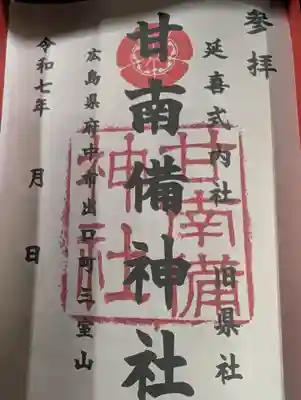 参拝
延喜式内社 旧県社
甘南備神社
甘南備
神社
広島県府中市出口町三室山
令和七年 月 日